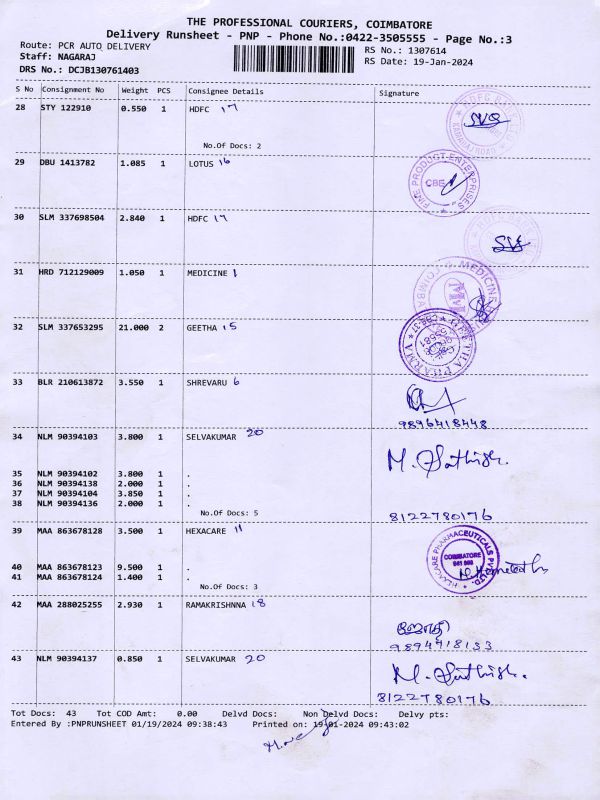 THE PROFESSIONAL COURIERS, COIMBATORE
Delivery Runsheet - PNP - Phone No.:0422-3505555 - Page No.:3
Route: PCR AUTO DELIVERY RS No.: 1307614
Staff: NAGARAJ RS Date: 19-Jan-2024
DRS No.: DCJB130761403
S No Consignment No Weight PCS Consignee Details Signature
28 STY 122910 0.550 1 HDFC 17
No.Of Docs: 2
29 DBU 1413782 1.085 1 LOTUS 16
FINE PRODUCT ENTERPRISES
CBE
30 SLM 337698504 2.840 1 HDFC 17
31 HRD 712129009 1.050 1 MEDICINE 1
32 SLM 337653295 21.000 2 GEETHA 15
GEETHA PHARMA
33 BLR 210613872 3.550 1 SHREVARU 6
9896418448
34 NLM 90394103 3.800 1 SELVAKUMAR 20
M. Sathish.
35 NLM 90394102 3.800 1 .
36 NLM 90394138 2.000 1 .
37 NLM 90394104 3.850 1 .
38 NLM 90394136 2.000 1 .
No.Of Docs: 5 8122780176
39 MAA 863678128 3.500 1 HEXACARE 11
HEXACARE PHARMACEUTICALS PVT. LTD.
COIMBATORE
40 MAA 863678123 9.500 1 .
41 MAA 863678124 1.400 1 .
No.Of Docs: 3
42 MAA 288025255 2.930 1 RAMAKRISHNNA 18
9894918133
43 NLM 90394137 0.850 1 SELVAKUMAR 20
M. Sathish.
8122780176
Tot Docs: 43 Tot COD Amt: 0.00 Delvd Docs: Non Delvd Docs: Delvy pts:
Entered By :PNPRUNSHEET 01/19/2024 09:38:43 Printed on: 19-01-2024 09:43:02